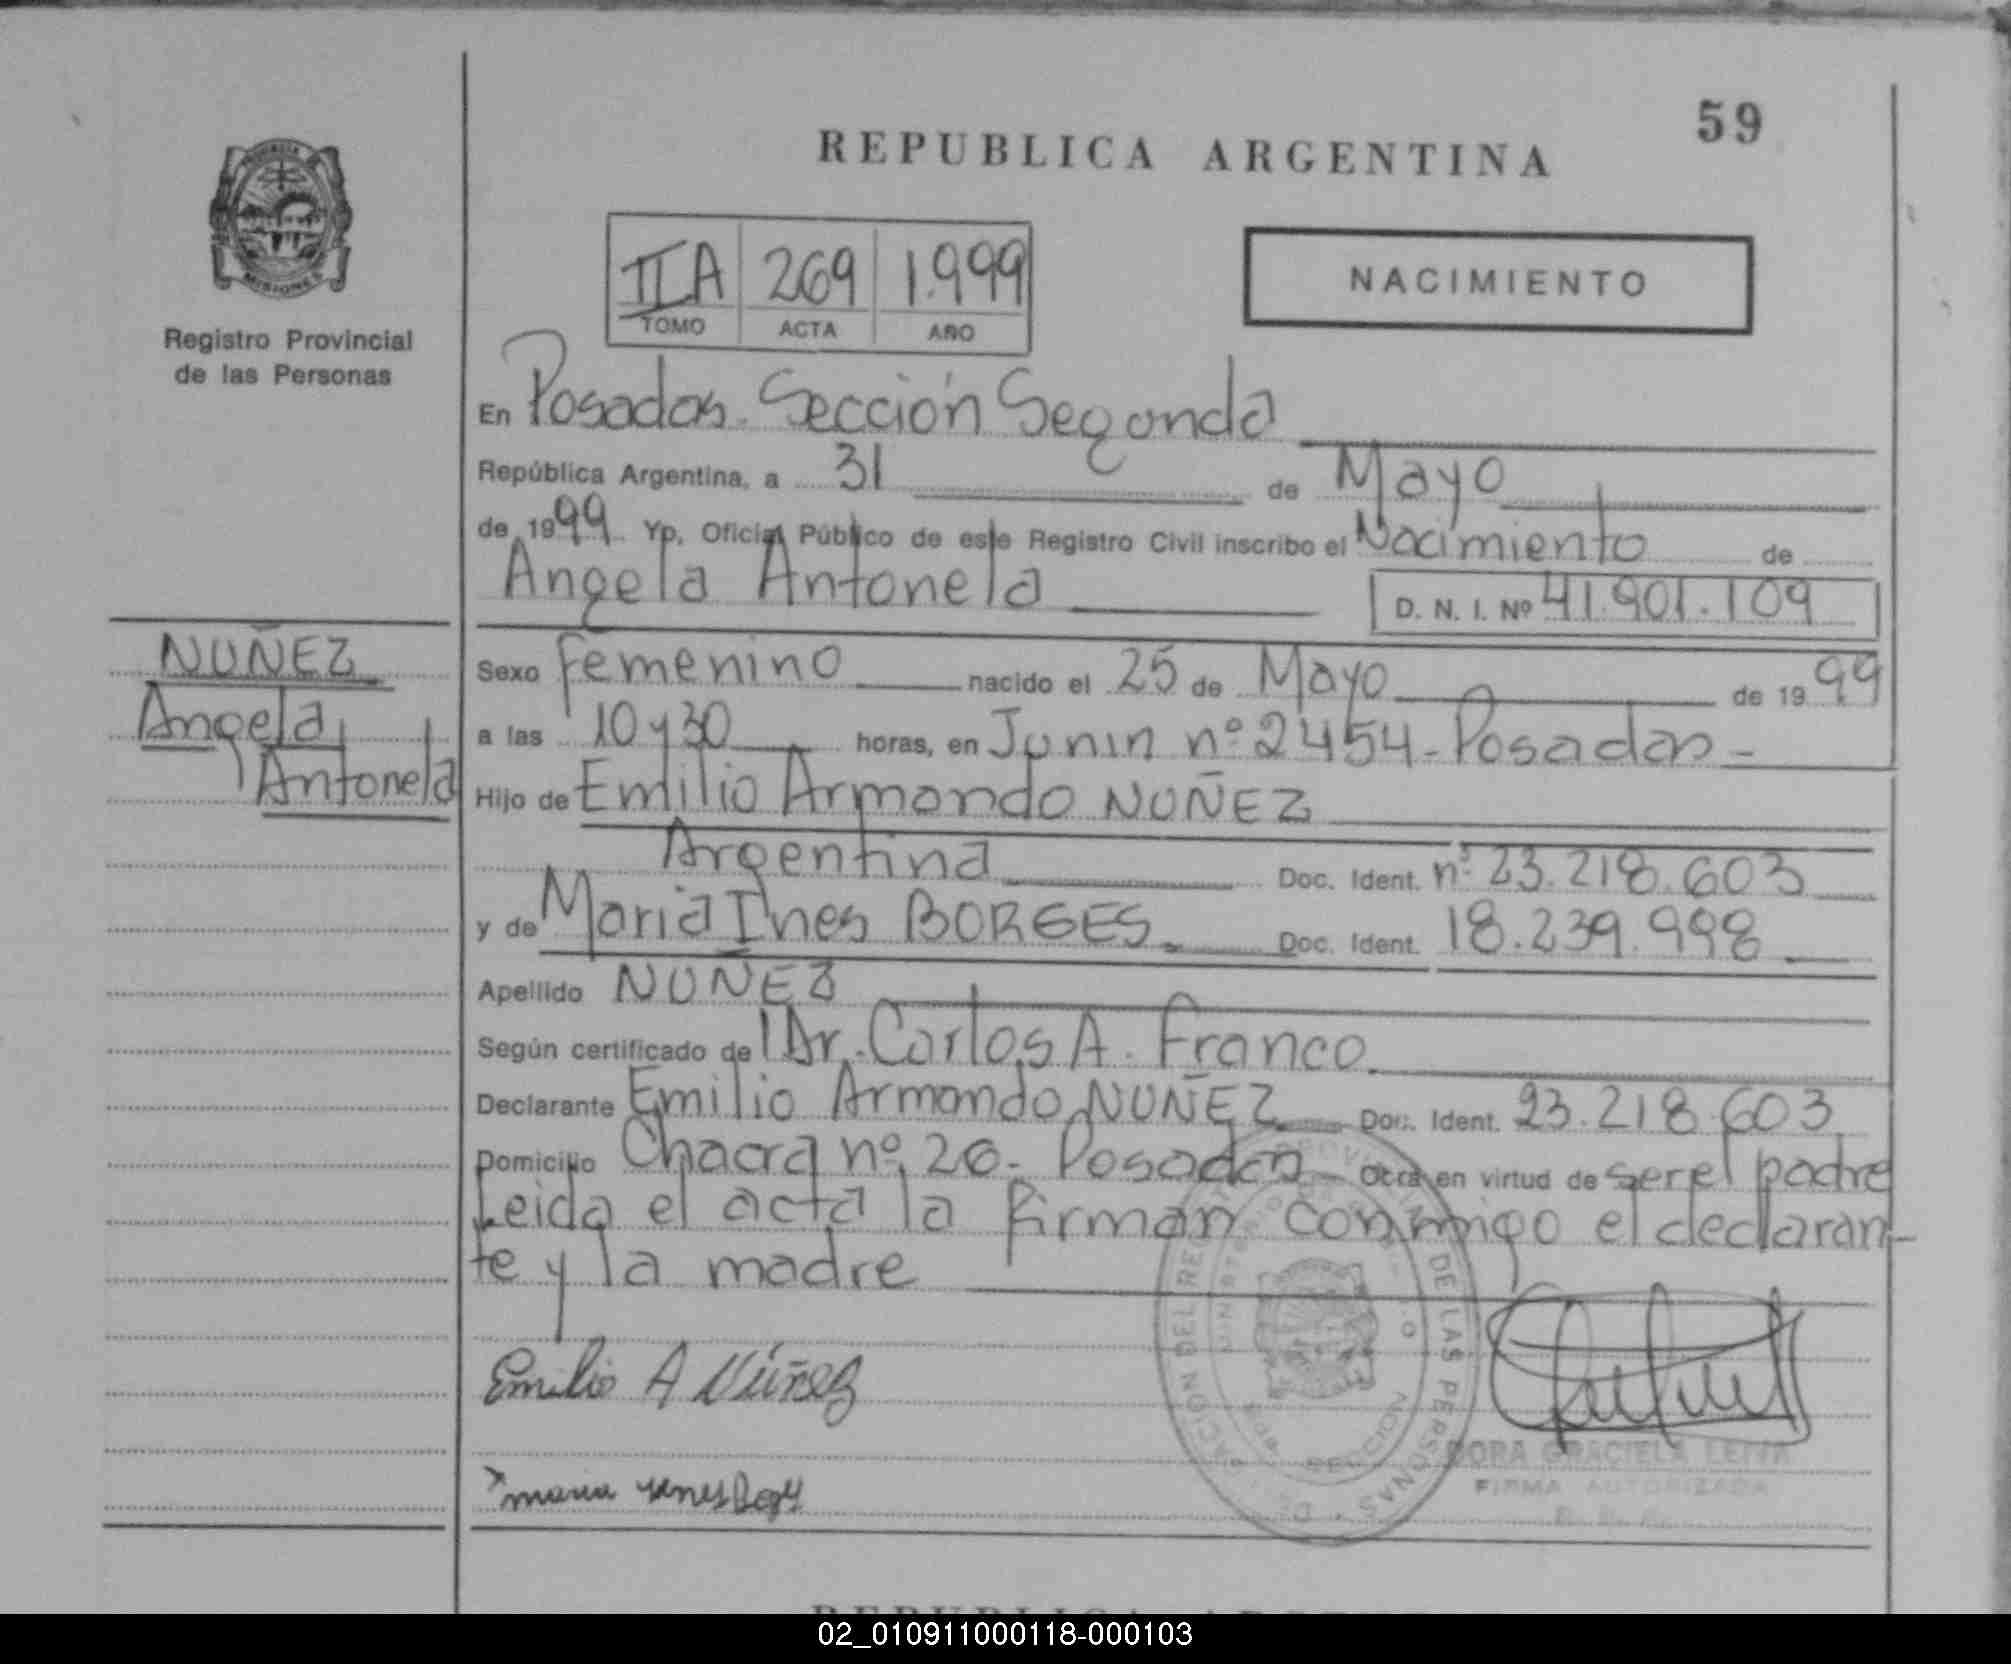 59
REPUBLICA ARGENTINA
PROVINCIA DE
MISIONES
Registro Provincial
de las Personas
II A 269 1.999
TOMO ACTA AÑO
NACIMIENTO
En Posadas. Sección Segunda
República Argentina, a 31 de Mayo
de 1999 Yo, Oficial Público de este Registro Civil inscribo el Nacimiento de
Angela Antonela D. N. I. Nº 41.901.109
NUÑEZ
Angela
Antonela
Sexo femenino nacido el 25 de Mayo de 1999
a las 10 y 30 horas, en Junin nº 2454 - Posadas -
Hijo de Emilio Armando NUÑEZ
Argentina Doc. Ident. nº 23.218.603
y de Maria Ines BORGES Doc. Ident. 18.239.998
Apellido NUÑEZ
Según certificado de Dr. Carlos A. Franco.
Declarante Emilio Armando NUÑEZ Doc. Ident. 23.218.603
Domicilio Chacra nº 26 - Posadas Obra en virtud de ser el padre
Leida el acta la firman conmigo el declaran-
te y la madre
Emilio A Núñez
maria ines
DORA GRACIELA LEIVA
FIRMA AUTORIZADA
DE LAS PERSONAS
SECCION
02_010911000118-000103